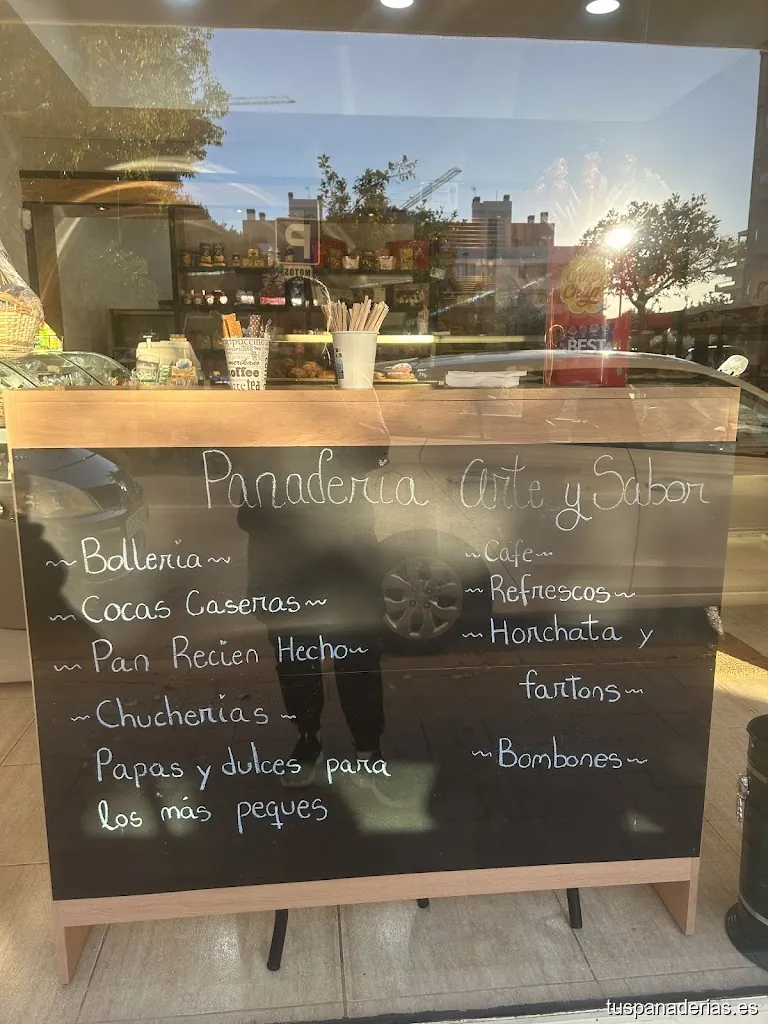 P
MOTOS
BEST
coffee
tea
Panadería Arte y Sabor
~Bolleria~
~Cocas Caseras~
~Pan Recien Hecho~
~Chucherías~
Papas y dulces para
los más peques
~Cafe~
~Refrescos~
~Horchata y
fartons~
~Bombones~
tuspanaderias.es